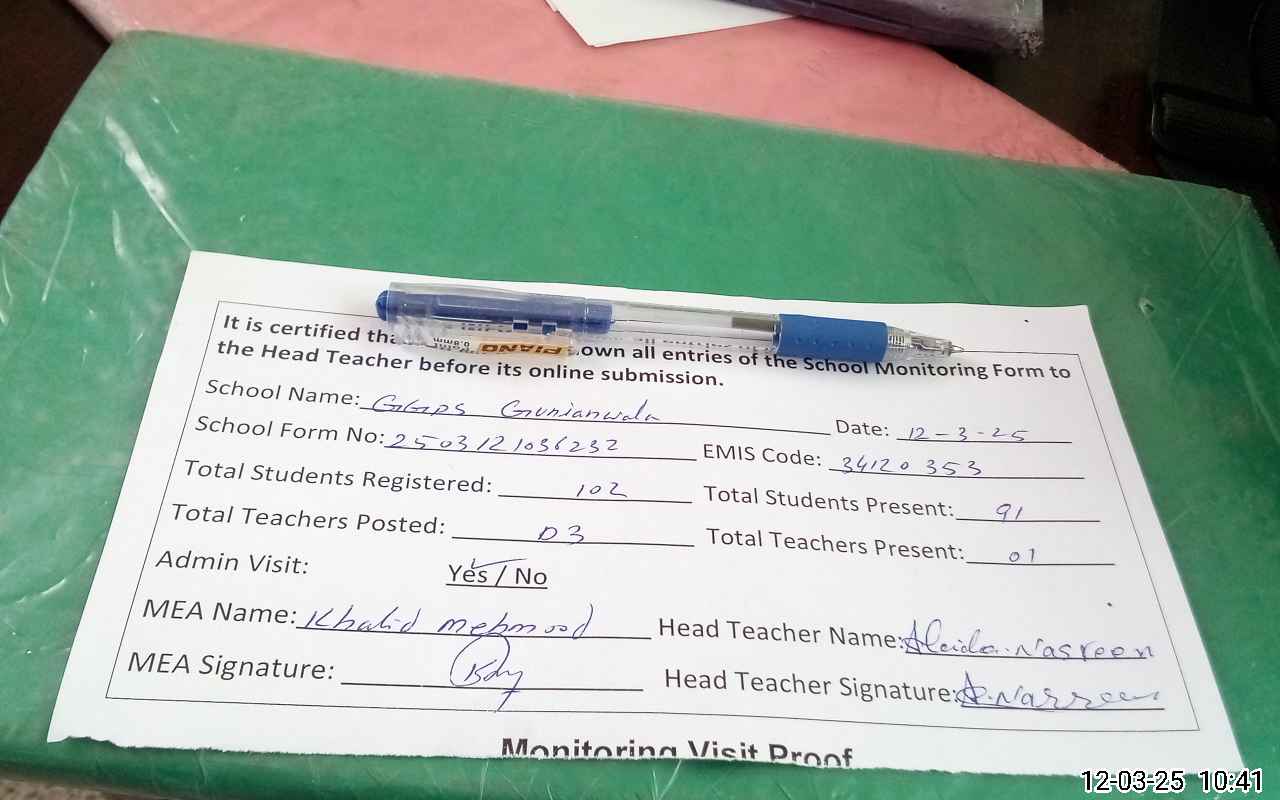 It is certified tha own all entries of the School Monitoring Form to
PIANO 0.8mm
the Head Teacher before its online submission.
School Name: GGPS Gunianwala Date: 12-3-25
School Form No: 2503121036232 EMIS Code: 34120353
Total Students Registered: 102 Total Students Present: 91
Total Teachers Posted: 03 Total Teachers Present: 01
Admin Visit: Yes / No
MEA Name: Khalid mehmood Head Teacher Name: Nasreen
MEA Signature: Head Teacher Signature: A.Nasreen
Monitoring Visit Proof
12-03-25 10:41